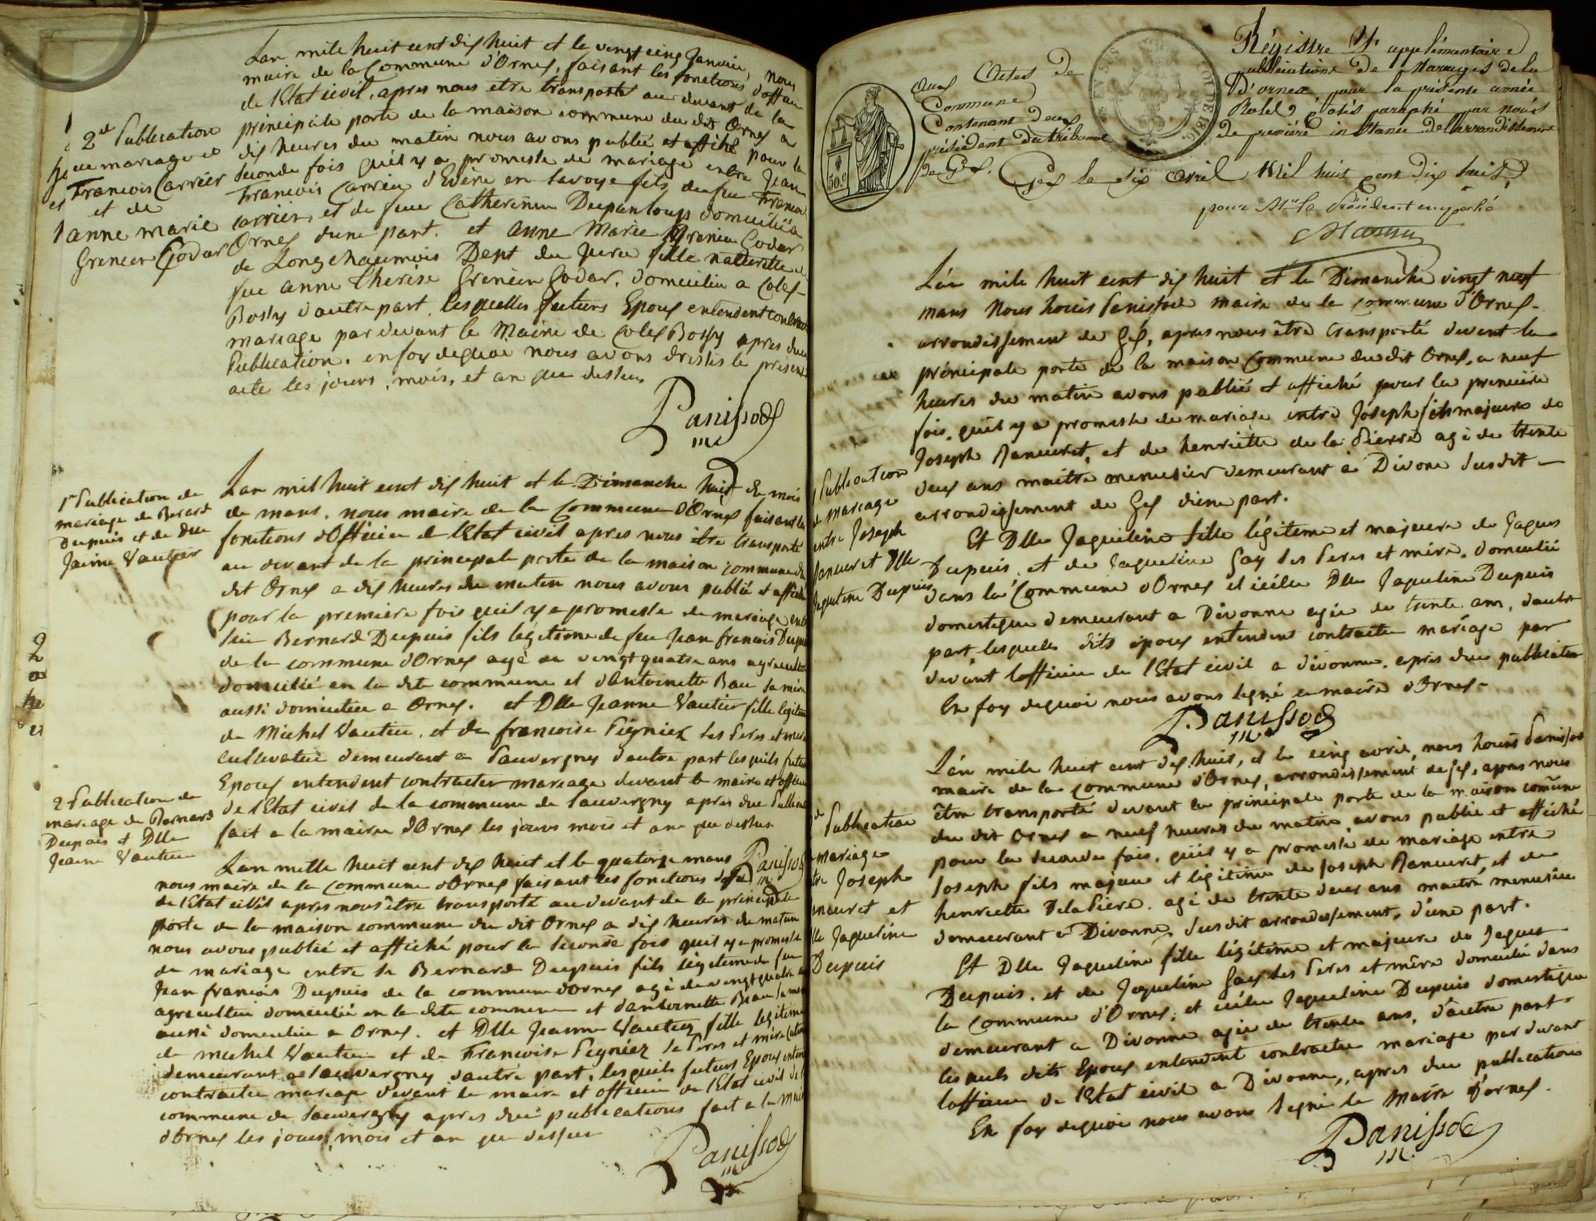 2de Publication
de mariage de
Francois Carrier
et de
anne marie
Grenier Godar
Lan mile huit cent dix huit et le vingt cinq Janvier, nous
maire de la Commune d'Ornex, faisant les fonctions d'officier
de l'Etat civil, apres nous etre transporté au devant de la
principale porte de la maison commune du dit Ornex a
dix heures du matin nous avons publié et affiché pour la
seconde fois quil y a promesse de mariage entre Jean
Francois Carrier d'Evire en Savoye fils de feu Francois
Carrier, et de feue Catherine Dupanloup domicilié a
Ornex dune part. et anne Marie Grenier Godar
de Longchaumois Dept du Jura fille naturelle de
feue anne therèse Grenier Godar, domiciliée a Colex
Bossy d'autre part, lesquelles futurs Epoux entendent contracter
mariage par devant le Maire de Colex Bossy apres due
Publication. en foy dequoi nous avons dressés le présent
acte les jours, mois, et an que dessus.
Panissod
m
1re Publication de
mariage de Berard
Dupuis et de Dlle
Jainne Vautier
Lan mil huit cent dix huit et le Dimanche huit du mois
de mars, nous maire de la Commune d'Ornex faisant les
fonctions d'Officier de l'Etat civil apres nous être transporté
au devant de la principale porte de la maison commune du
dit Ornex a dix heures du matin nous avons publié et affiché
pour la premiere fois quil y a promesse de mariage entre
Sieur Bernard Dupuis fils legitime de feu Jean francois Dupuis
de la commune d'Ornex agé de vingt quatre ans agriculteur
domicilié en la dite commune et d'Antoinette Bau sa mère
aussi domiciliée a Ornex. et Dlle Jeanne Vautier fille legitime
de Michel Vautier, et de francoise Pégniez ses Peres et mere
cultivateur demeurant a Sauvergny d'autre part lesquels futurs
Epoux entendent contracter mariage devant le maire et officier
de l'Etat civil de la commune de Sauvergny apres due Publication
fait a la mairie d'Ornex les jours mois et an que dessus
Panissod
m
2 Publication de
mariage de Bernard
Dupuis et Dlle
Jeanne Vautier
Lan mille huit cent dix huit et le quatorze mars
nous maire de la commune d'Ornex faisant les fonctions d'officier
de l'Etat civil apres nous être transporté au devant de la principale
porte de la maison commune du dit Ornex a dix heures du matin
nous avons publié et affiché pour la seconde fois quil y a promesse
de mariage entre Sr Bernard Dupuis fils légitime de feu
Jean francois Dupuis de la commune d'Ornex agé de vingt quatre ans
agriculteur domicilié en la dite commune et d'antoinette Beau sa mère
aussi domiciliée a Ornex. et Dlle Jeanne Vautier fille legitime
de michel Vautier et de Francoise Pegniez ses Peres et mère
demeurant a Sauvergny d'autre part, lesquels futurs Epoux entendent
contracter mariage devant le maire et officier de l'Etat civil de la
commune de Sauvergny apres due publications fait a la mairie
d'Ornex les jours, mois et an que dessus
Panissod
m
Régistre Supplémentaire
aux Actes de publications de Mariages de la
Commune d'ornex pour la présente année
Contenant deux Rolles, côtés paraphé par nous
président du tribunal de premiére instance de l'arrondissement
de Gex. Gex le dix avril Mil huit Cent Dix huit,
pour Mr le Président empêché
50c
L'an mile huit cent dix huit et le Dimanche vingt neuf
mars Nous Panissod maire de la commune d'Ornex
arrondissement de Gex, apres nous être transporté devant la
principale porte de la maison Commune du dit Ornex, a neuf
heures du matin avons publié et affiché pour la premiere
fois, quil y a promesse de mariage entre Joseph fils majeur de
Joseph Ranvuret, et de henriette de la Pierre agé de trente
deux ans maitre menusier demeurant à Divone susdit
arrondissement de Gex dune part.
1 Publication
de mariage
entre Joseph
Ranvuret Dlle
Jaqueline Dupuis
Et Dlle Jaqueline fille légitime et majeure de Jaques
Dupuis, et de Jaqueline Gay ses Peres et mére, domicilié
dans la Commune d'Ornex et icelle Dlle Jaqueline Dupuis
domestique demeurant a Divonne agée de trente ans, d'autre
part, lesquels dits époux entendent contracter mariage par
devant l'officier de l'Etat civil a divonne, apres due publication
En foy dequoi nous avons signé le maire d'Ornex
Panissod
m
L'an mile huit cent dix huit, et le cinq avril, nous Panissod
maire de la commune d'Ornex, arrondissement de Gex, apres nous
être transporté devant la principale porte de la maison comune
du dit Ornex a neuf heures du matin, avons publié et affiché
pour la seconde fois, quil y a promesse de mariage entre
Joseph fils majeur et légitime de Joseph Ranvuret, et de
henriette Delapiere, agé de trente deux ans maitre menusier
demeurant a Divonne, susdit arrondissement, d'une part.
Publication
mariage
Joseph
et
Jaqueline
Dupuis
Et Dlle Jaqueline fille légitime et majeure de Jaques
Dupuis, et de Jaqueline Gay ses Peres et mère domicilié dans
la Commune d'Ornex, et icelle Jaqueline Dupuis domestique
demeurant a Divonne agée de trente ans, d'autre part
lesquels dits Epoux entendent contracter mariage par devant
l'officier de l'Etat civil a Divonne, apres due publication
En foy dequoi nous avons signé le Maire d'ornex.
Panissod
m